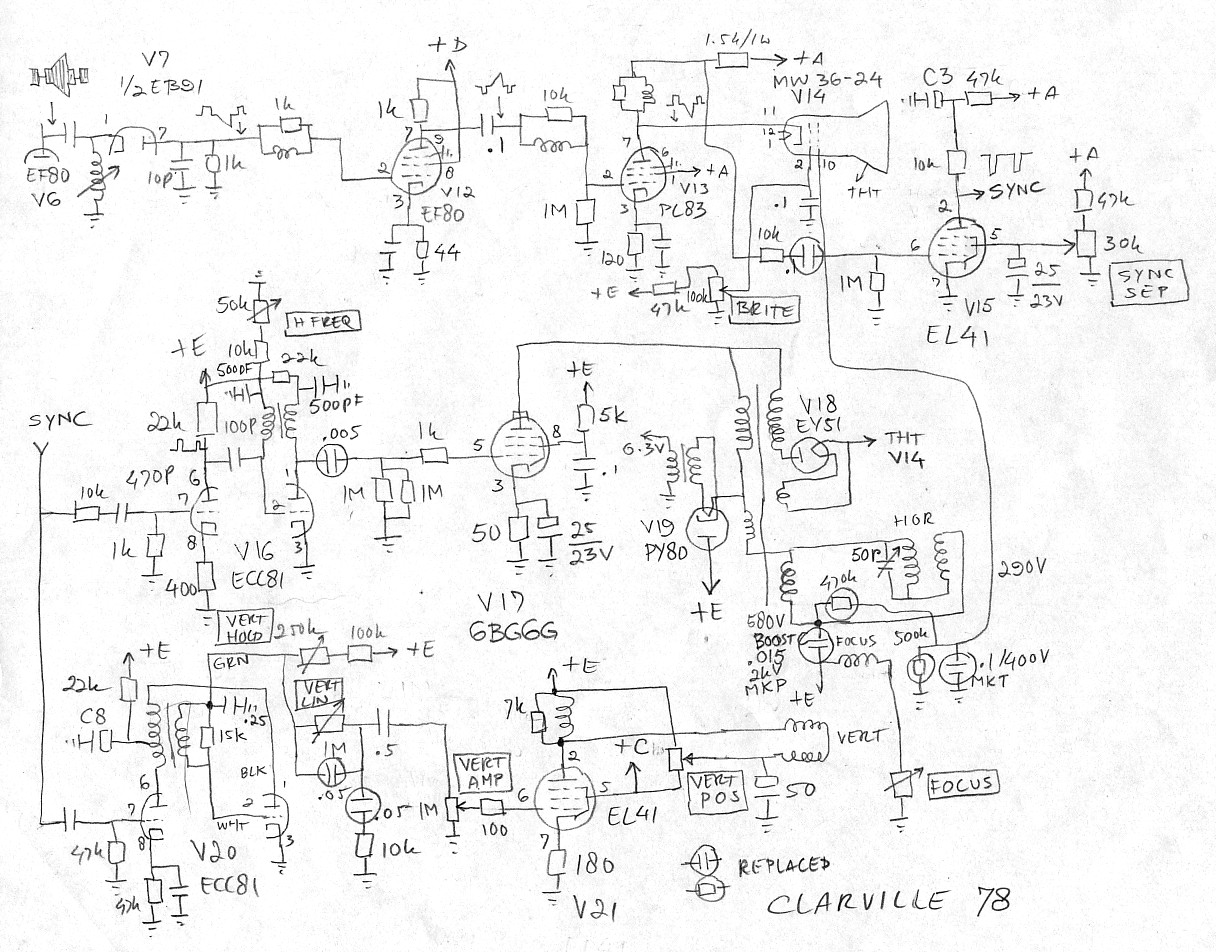 V7
1/2 EB91
1
7
EF80
V6
10p
1k
1k
+D
1k
7
9
8
2
3
V12
EF80
44
.1
10k
1M
2
7
6
3
120
V13
PL83
+A
1.5k/1W
+A
MW 36-24
V14
11
12
2
10
THT
.1
10k
.1
+E
47k
100k
BRITE
1M
C3
47k
+A
10k
SYNC
2
6
5
7
V15
EL41
25
23V
+A
47k
30k
SYNC
SEP
50k
H FREQ
+E
10k
500PF
22k
500PF
22k
100p
SYNC
10k
470P
6
7
8
1k
400
V16
ECC81
1
2
3
.005
1M
1M
1k
5
8
3
+E
5k
.1
50
25
23V
V17
6BG6G
6.3V
V19
PY80
+E
V18
EY51
THT
V14
HOR
50p
470k
290V
580V
BOOST
.015
2kV
MKP
FOCUS
500k
.1/400V
MKT
+E
VERT
HOLD
250k
100k
+E
+E
22k
C8
GRN
.25
15k
BLK
WHT
6
7
8
2
1
3
47k
47k
V20
ECC81
VERT
LIN
1M
.05
.5
.05
10k
1M
VERT
AMP
100
6
2
5
7
180
V21
EL41
7k
+E
+C
VERT
POS
VERT
50
FOCUS
REPLACED
CLARVILLE 78